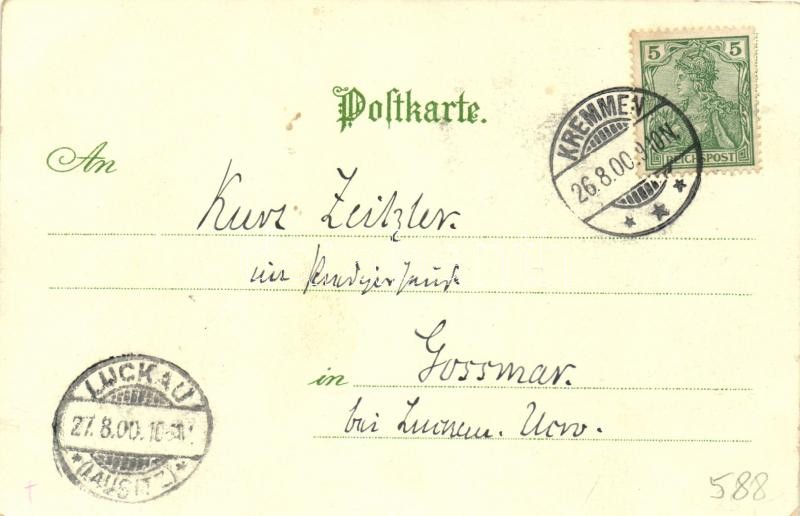 5 5
REICHSPOST
Postkarte.
KREMMEN
26.8.00.9-10N.
An
Kurt Zeitzler.
im Predigerhause
in Gossmar.
bei Luckau.
LUCKAU
27.8.00.
(LAUSITZ)
588